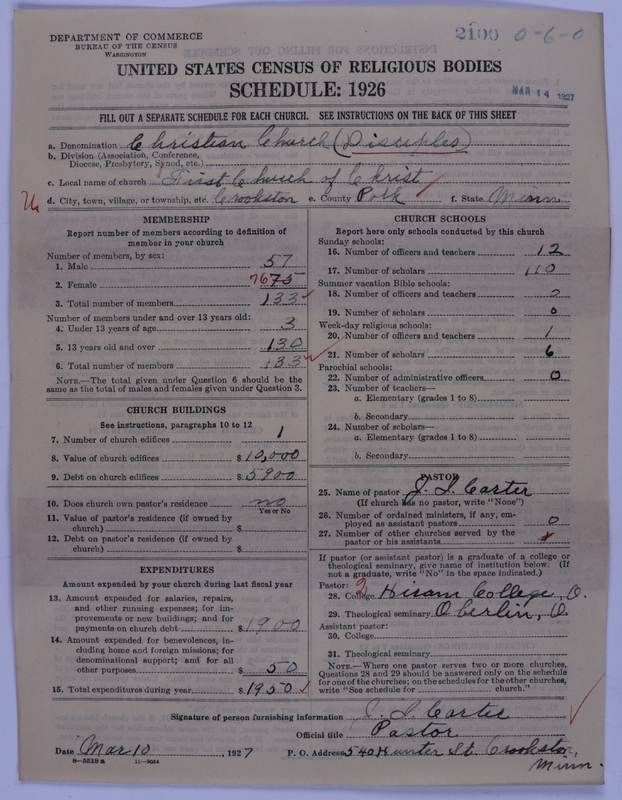 2100 0-6-0
DEPARTMENT OF COMMERCE
BUREAU OF THE CENSUS
WASHINGTON
UNITED STATES CENSUS OF RELIGIOUS BODIES
SCHEDULE: 1926
MAR 14 1927
FILL OUT A SEPARATE SCHEDULE FOR EACH CHURCH. SEE INSTRUCTIONS ON THE BACK OF THIS SHEET
a. Denomination Christian Church (Disciples)
b. Division (Association, Conference,
Diocese, Presbytery, Synod, etc.)
c. Local name of church First Church of Christ
d. City, town, village, or township, etc. Crookston e. County Polk f. State Minn
MEMBERSHIP
Report number of members according to definition of
member in your church
Number of members, by sex:
1. Male 57
2. Female 76 75
3. Total number of members 133
Number of members under and over 13 years old:
4. Under 13 years of age 3
5. 13 years old and over 130
6. Total number of members 133
NOTE.—The total given under Question 6 should be the
same as the total of males and females given under Question 3.
CHURCH BUILDINGS
See instructions, paragraphs 10 to 12
7. Number of church edifices 1
8. Value of church edifices $ 10,000
9. Debt on church edifices $ 5900
10. Does church own pastor's residence no
Yes or No
11. Value of pastor's residence (if owned by
church) $
12. Debt on pastor's residence (if owned by
church) $
EXPENDITURES
Amount expended by your church during last fiscal year
13. Amount expended for salaries, repairs,
and other running expenses; for im-
provements or new buildings; and for
payments on church debt $ 1900
14. Amount expended for benevolences, in-
cluding home and foreign missions; for
denominational support; and for all
other purposes $ 50
15. Total expenditures during year $ 1950
CHURCH SCHOOLS
Report here only schools conducted by this church
Sunday schools:
16. Number of officers and teachers 12
17. Number of scholars 110
Summer vacation Bible schools:
18. Number of officers and teachers 0
19. Number of scholars 0
Week-day religious schools:
20. Number of officers and teachers 1
21. Number of scholars 6
Parochial schools:
22. Number of administrative officers 0
23. Number of teachers—
a. Elementary (grades 1 to 8)
b. Secondary
24. Number of scholars—
a. Elementary (grades 1 to 8)
b. Secondary
PASTOR
25. Name of pastor J. I. Carter
(If church has no pastor, write "None")
26. Number of ordained ministers, if any, em-
ployed as assistant pastors 0
27. Number of other churches served by the
pastor or his assistants
If pastor (or assistant pastor) is a graduate of a college or
theological seminary, give name of institution below. (If
not a graduate, write "No" in the space indicated.)
Pastor:
28. College Hiram College, O.
29. Theological seminary Oberlin, O.
Assistant pastor:
30. College
31. Theological seminary
NOTE.—Where one pastor serves two or more churches,
Questions 28 and 29 should be answered only on the schedule
for one of the churches; on the schedules for the other churches,
write "See schedule for church."
Signature of person furnishing information J. I. Carter
Official title Pastor
Date Mar 10, 1927 P. O. Address 540 Hunter St. Crookston,
Minn.
8—5518 a 11—9054